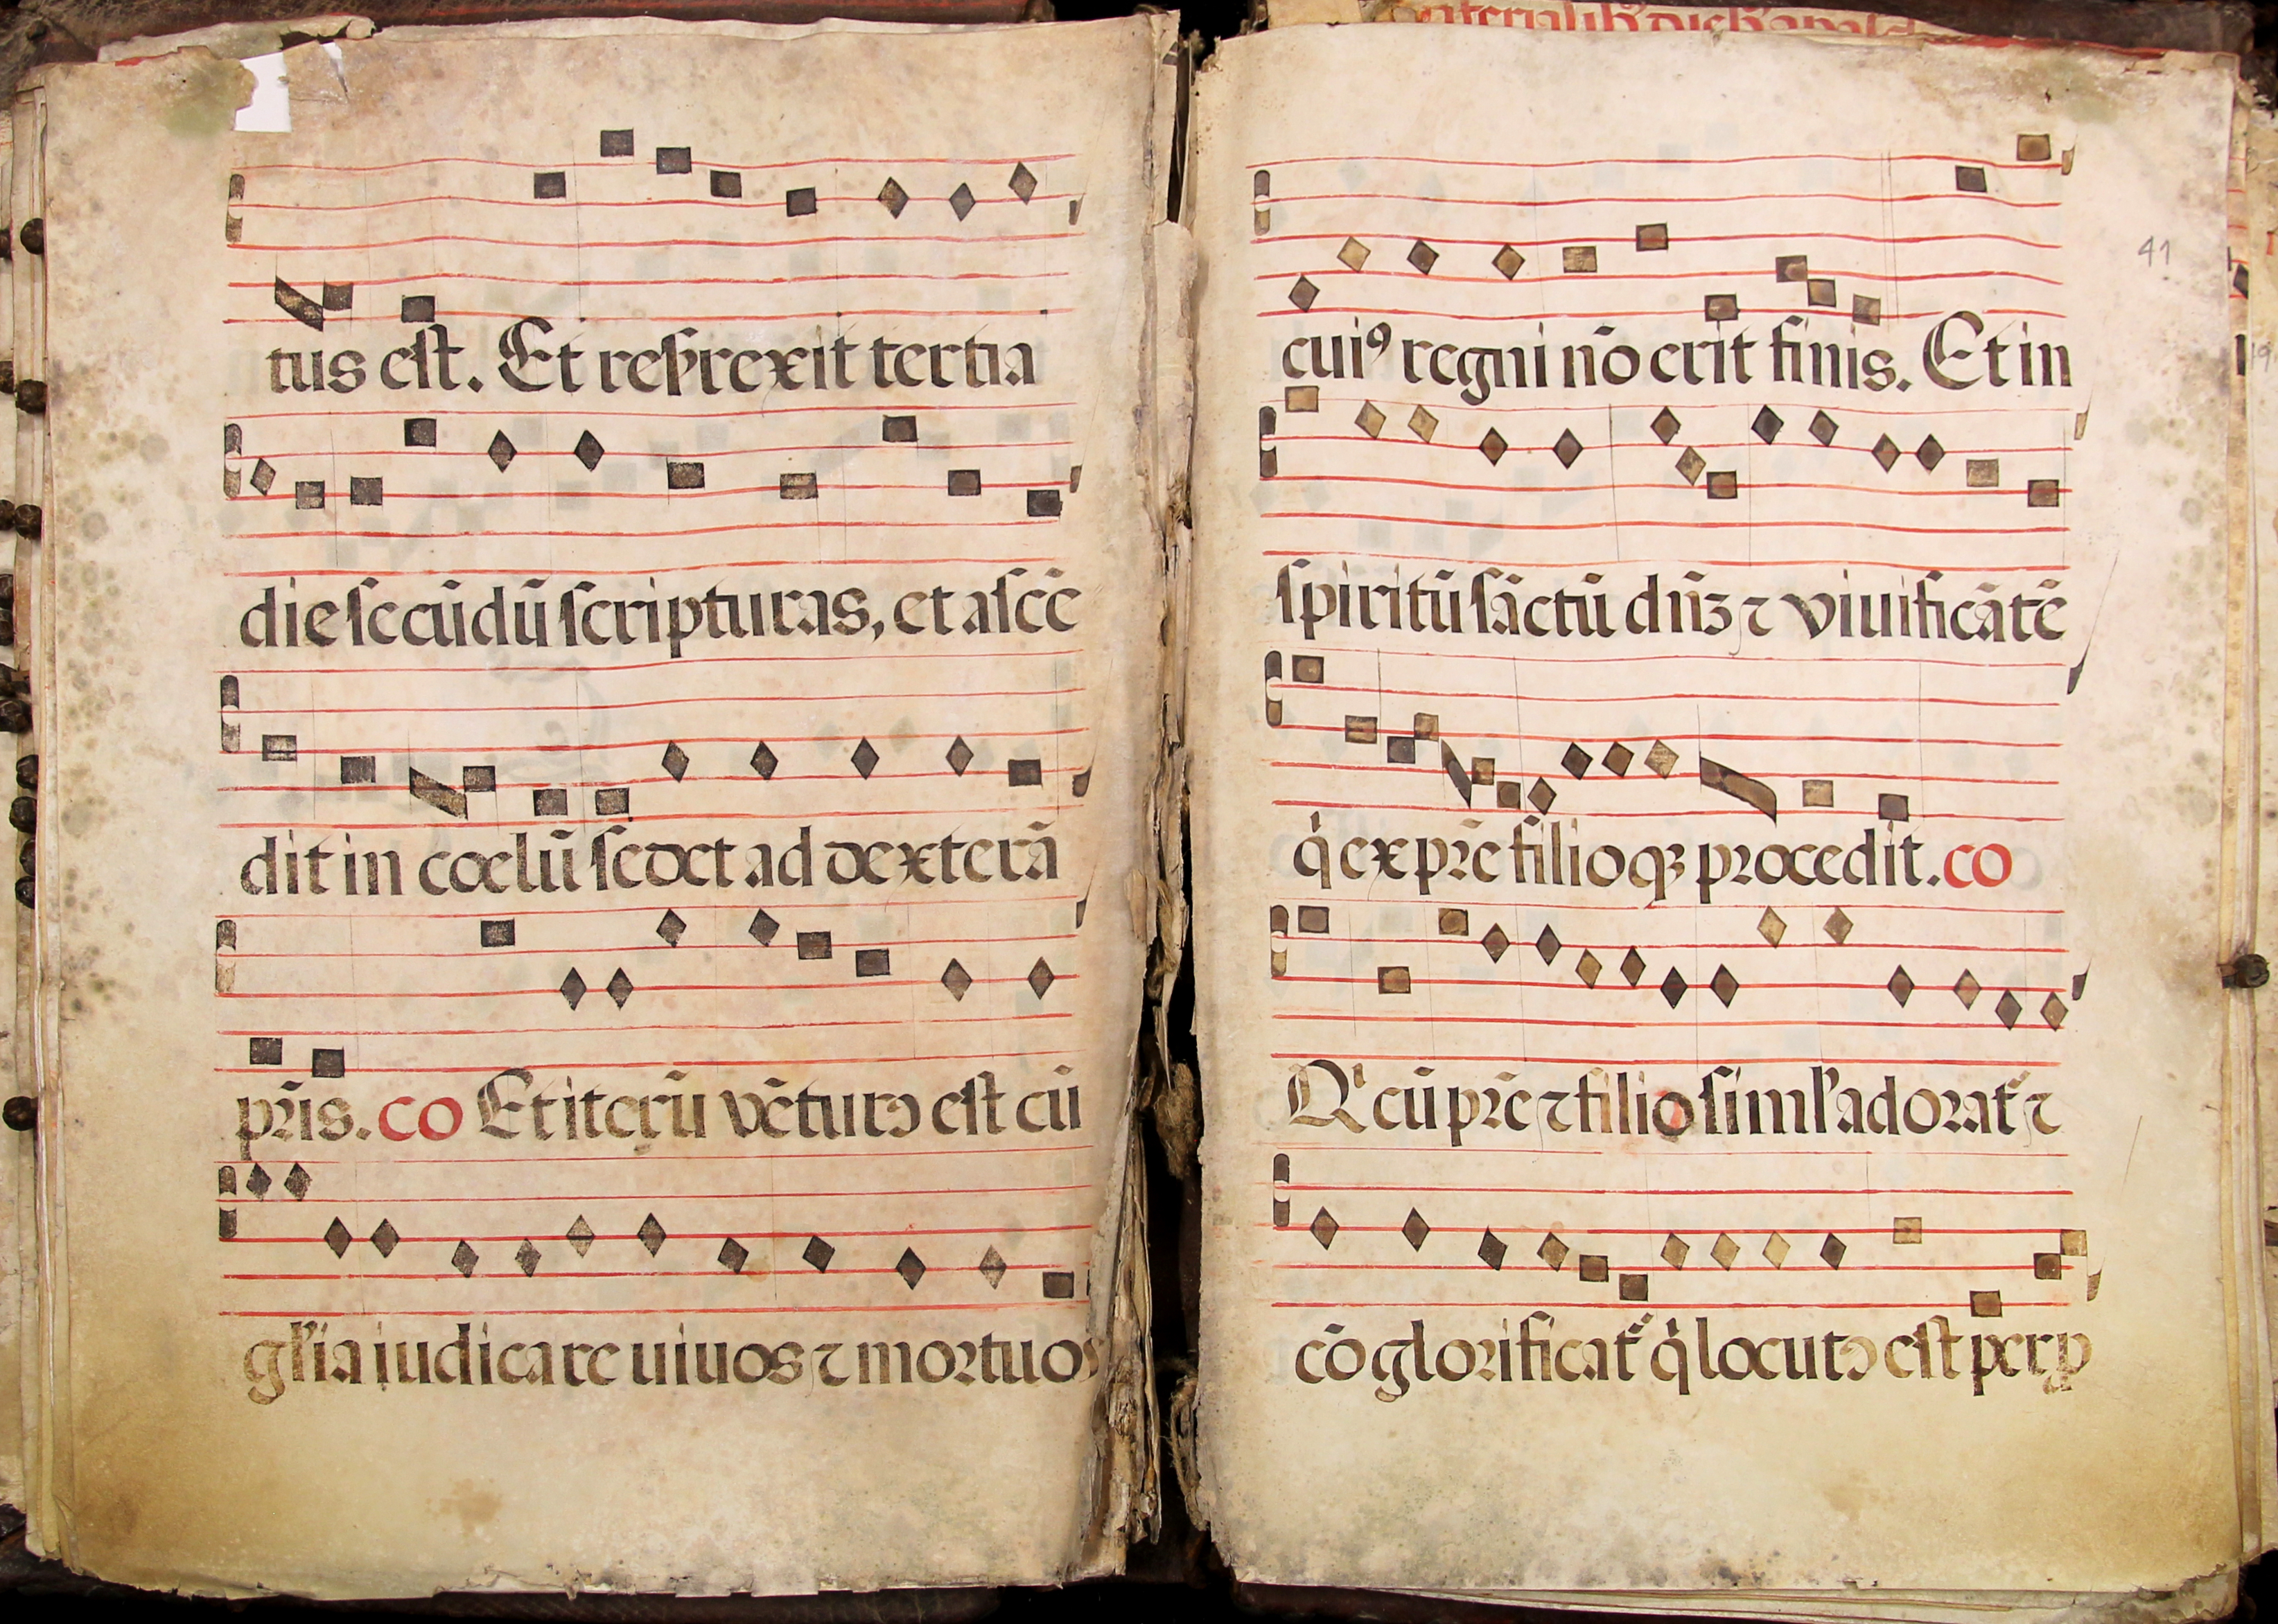 tus est. Et resrexit tertia
die secūdū scripturas, et ascē
dit in cœlū sedet ad dexterā
pr̄is. co Et iterū vētur⁹ est cū
gl'ia iudicare uiuos ⁊ mortuos
41
cui⁹ regni nō erit finis. Et in
spiritū sāctū dn̄ꝫ ⁊ viuificātē
q̇ ex pr̄e filioqꝫ procedit. co
Q' cū pr̄e ⁊ filio siml' adorat' ⁊
cō glorificat' q̇ locut⁹ est per ꝓ